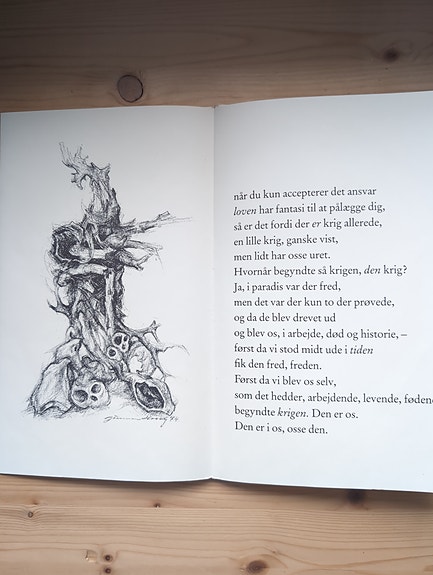 når du kun accepterer det ansvar
loven har fantasi til at pålægge dig,
så er det fordi der er krig allerede,
en lille krig, ganske vist,
men lidt har osse uret.
Hvornår begyndte så krigen, den krig?
Ja, i paradis var der fred,
men det var der kun to der prøvede,
og da de blev drevet ud
og blev os, i arbejde, død og historie, –
først da vi stod midt ude i tiden
fik den fred, freden.
Først da vi blev os selv,
som det hedder, arbejdende, levende, føden
begyndte krigen. Den er os.
Den er i os, osse den.